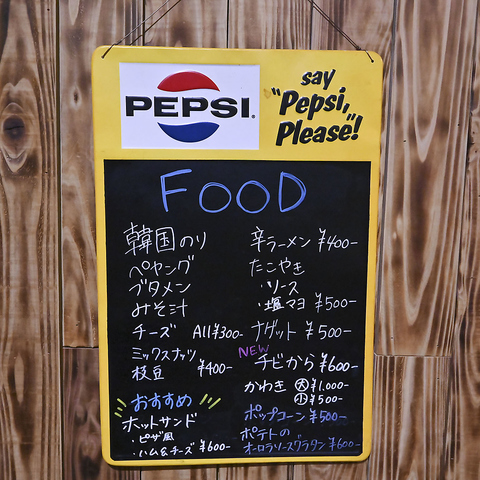 PEPSI®
say
"Pepsi,
Please"!
FOOD
韓国のり
ペヤング
ブタメン
みそ汁
チーズ All ¥300-
ミックスナッツ
枝豆 ¥400-
おすすめ
ホットサンド
・ピザ風
・ハム&チーズ ¥600-
辛ラーメン ¥400-
たこやき
・ソース
・塩マヨ ¥500-
ナゲット ¥500-
NEW
チビから ¥600-
かわき 大 ¥1,000-
小 ¥500-
ポップコーン ¥500-
ポテトの
オーロラソースグラタン ¥600-